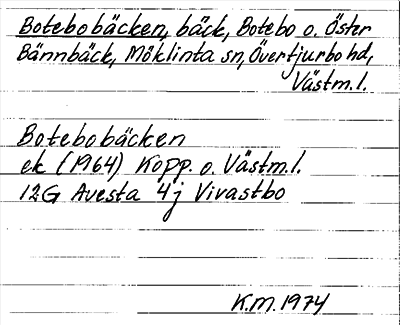 Botebobäcken, bäck, Botebo o. Öster
Bännbäck, Möklinta sn, Övertjurbo hd,
Västm.l.
Botebobäcken
ek (1964) Kopp. o. Västm.l.
12G Avesta 4j Vivastbo
K.M. 1974